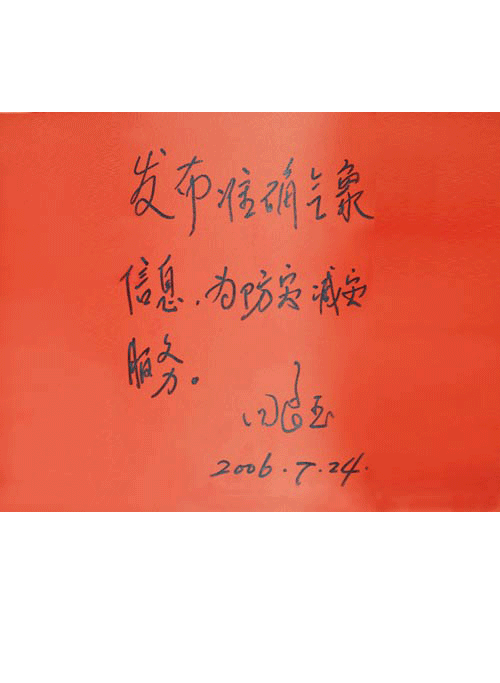 发布准确气象
信息，为防灾减灾
服务。
回良玉
2006.7.24.